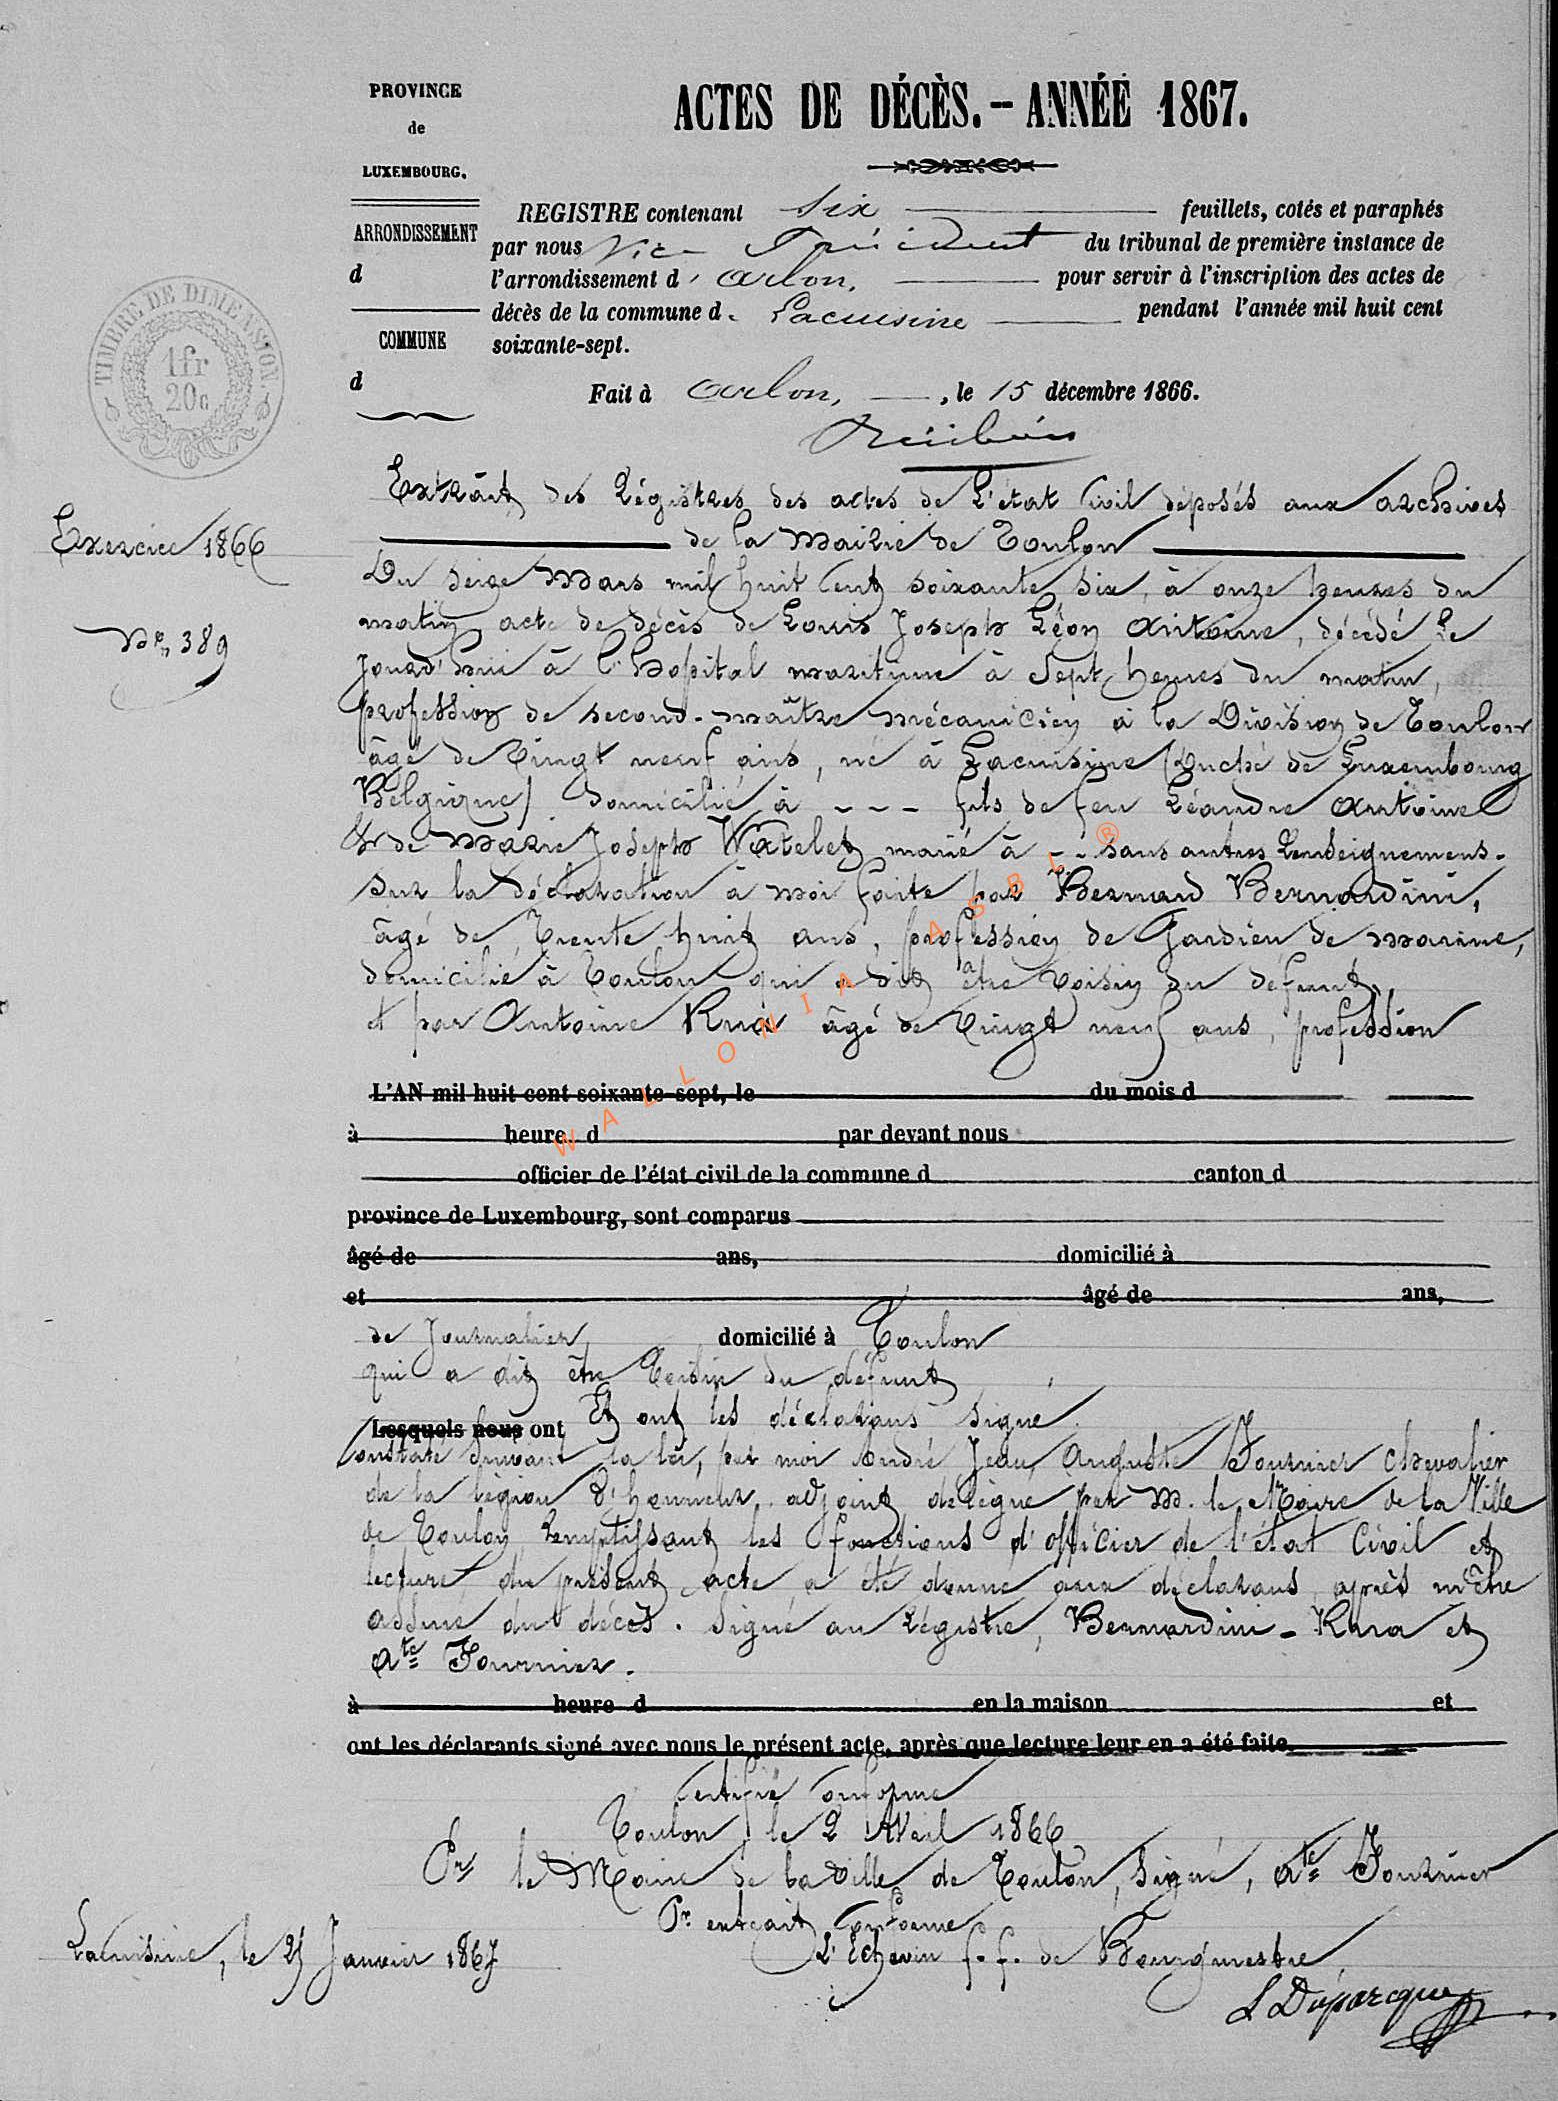 PROVINCE
de
LUXEMBOURG.
ARRONDISSEMENT
d
COMMUNE
d
ACTES DE DÉCÈS. – ANNÉE 1867.
REGISTRE contenant six feuillets, cotés et paraphés
par nous Vice Président du tribunal de première instance de
l'arrondissement d' Arlon, pour servir à l'inscription des actes de
décès de la commune d. Lacuisine pendant l'année mil huit cent
soixante-sept.
Fait à Arlon, , le 15 décembre 1866.
TIMBRE DE DIMENSION.
1fr
20c
Exercice 1866
Nº 389
Extrait des Régistres des actes de L'état Civil déposés aux archives
de la Mairie de Toulon
Du seize Mars mil huit Cent soixante six, à onze heures du
matin, acte de décès de Louis Joseph Léon Antoine, décédé Ce
Jourd'hui à l'hopital maritime à Sept heures du matin,
profession de second-maître mécanicien à la Division de Toulon
âgé de Vingt neuf ans, né à Lacuisine (Duché de Luxembourg
Belgique) domicilié à - - - fils de feu Léandre Antoine
Et de Marie Joseph Watelet marié à - - sans autres Renseignemens.
Sur la déclaration à moi faite par Bernard Bernardini,
âgé de Trente huit ans, profession de Gardien de marine,
domicilié à Toulon qui a dit être Voisin du défunt,
et par Antoine Rua âgé de Vingt neuf ans, profession
L'AN mil huit cent soixante-sept, le du mois d
à heure d par devant nous
officier de l'état civil de la commune d canton d
province de Luxembourg, sont comparus
âgé de ans, domicilié à
et âgé de ans,
de Journalier, domicilié à Toulon
qui a dit être Voisin du défunt
Lesquels nous ont Et ont les déclarans signé
Constaté suivant la loi, par moi André Jean Auguste Fournier Chevalier
de la légion d'honneur, adjoint délégué par M. le Maire de la Ville
de Toulon Remplissant les fonctions d'officier de l'état Civil et
lecture du présent acte a été donné aux déclarans après m'être
assuré du décès. Signé au Régistre, Bernardini - Rua et
Ate Fournier.
à heure d en la maison et
ont les déclarants signé avec nous le présent acte, après que lecture leur en a été faite
Certifié Conforme
Toulon, le 2 Avril 1866
Pr le Maire de la Ville de Toulon, Signé, Ate Fournier
Pr extrait Conforme
Lacuisine, le 25 Janvier 1867
L'Echevin f.f. de Bourgmestre,
L Duparcque
WALLONIA ASBL ®